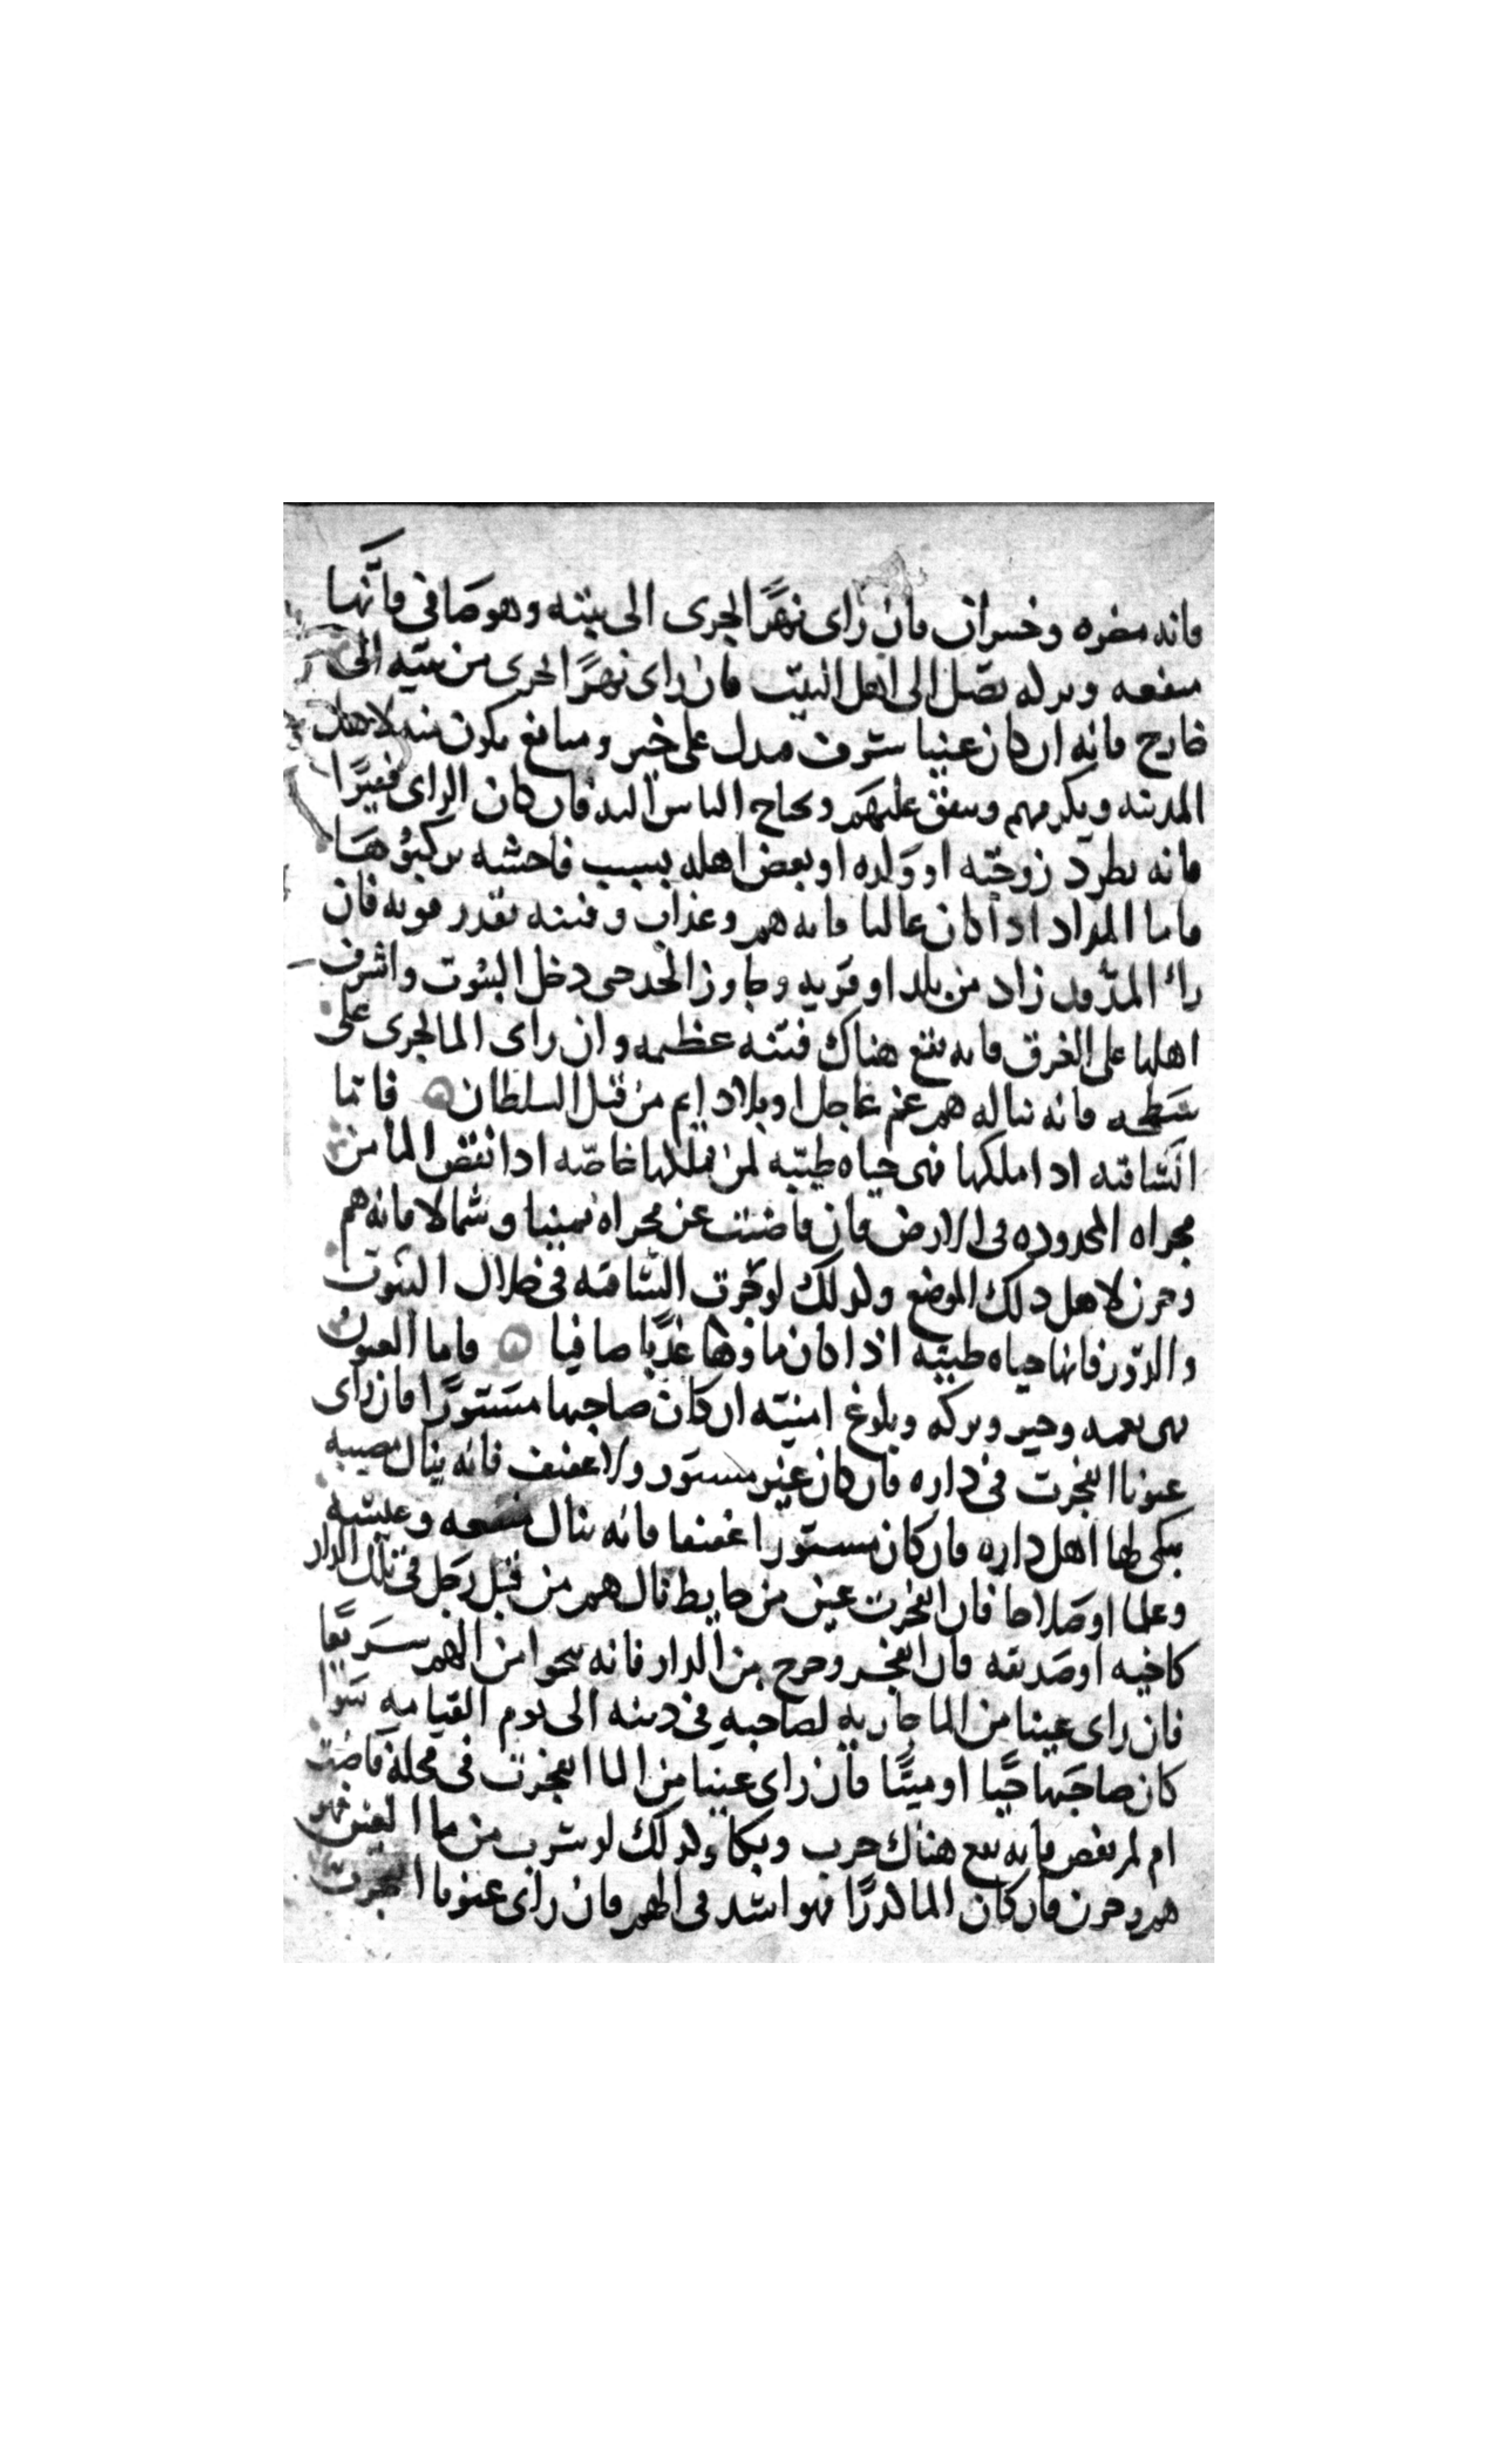 فانه مضره وخسران فان راى نهرًا يجرى الى بيته وهو صافى فانها
منفعه وبركه تصل الى اهل البيت فان راى نهرًا يجرى من بيته الى
خارج فانه ان كان عنيا شرف يدل على خير ومنافع يكون منه لاهل
المدينه ويكرمهم وينفق عليهم ويحتاج الناس اليه فان كان الراى فقيرًا
فانه يطرد زوجته او ولده او بعض اهله بسبب فاحشه يركبوها
فاما المد اذا كان عاليا فانه هم وعذاب وفتنه بقدر قوته فان
راى المد قد زاد من بلد او قريه وجاوز الحد حى دخل البيوت واشرف
اهلها على الغرق فانه يقع هناك فتنه عظيمه وان راى الما يجرى على
سطحه فانه يناله هم عم عاجل او بلا دايم من قبل السلطان فاما
الساقيه ادا ملكها فهى حياه طيبه لمن ملكها خاصه ادا نقص الما من
مجراه المحدوده فى الارض فان فاضت عن مجراه يمينا وشمالا فانه هم
وحزن لاهل دلك الموضع وكدلك لو جرت الساقيه فى خلال البيوت
والدور فانها حياه طيبه اذا كان ماوها عذبًا صافيا فاما العيون
فهى نعمه وخير وبركه وبلوغ امنيته ان كان صاحبها مستورًا فان راى
عيونا انفجرت فى داره فان كان غير مستور ولا عفيف فانه ينال مصيبه
يبكى لها اهل داره فان كان مستورا عفيفا فانه ينال وعيشه
وعلما او صلاحا فان انفجرت عين من حايط نال هم من قبل رجل فى تلك الدار
كاخيه او صديقه فان انفجر وخرج من الدار فانه ينجوا من الهم سريعًا
فان راى عينا من الما جاريه لصاحبه فى دينه الى يوم القيامه سوا
كان صاحبها حيًا او ميتًا فان راى عينا من الما انفجرت فى محلة فاضت
ام لم تفض فانه يقع هناك حرب وبكا وكدلك لو شرب من ما العين فهو
هم وحزن فان كان الما كدرًا فهو اشد فى الهم فان راى عيونا انفجرت